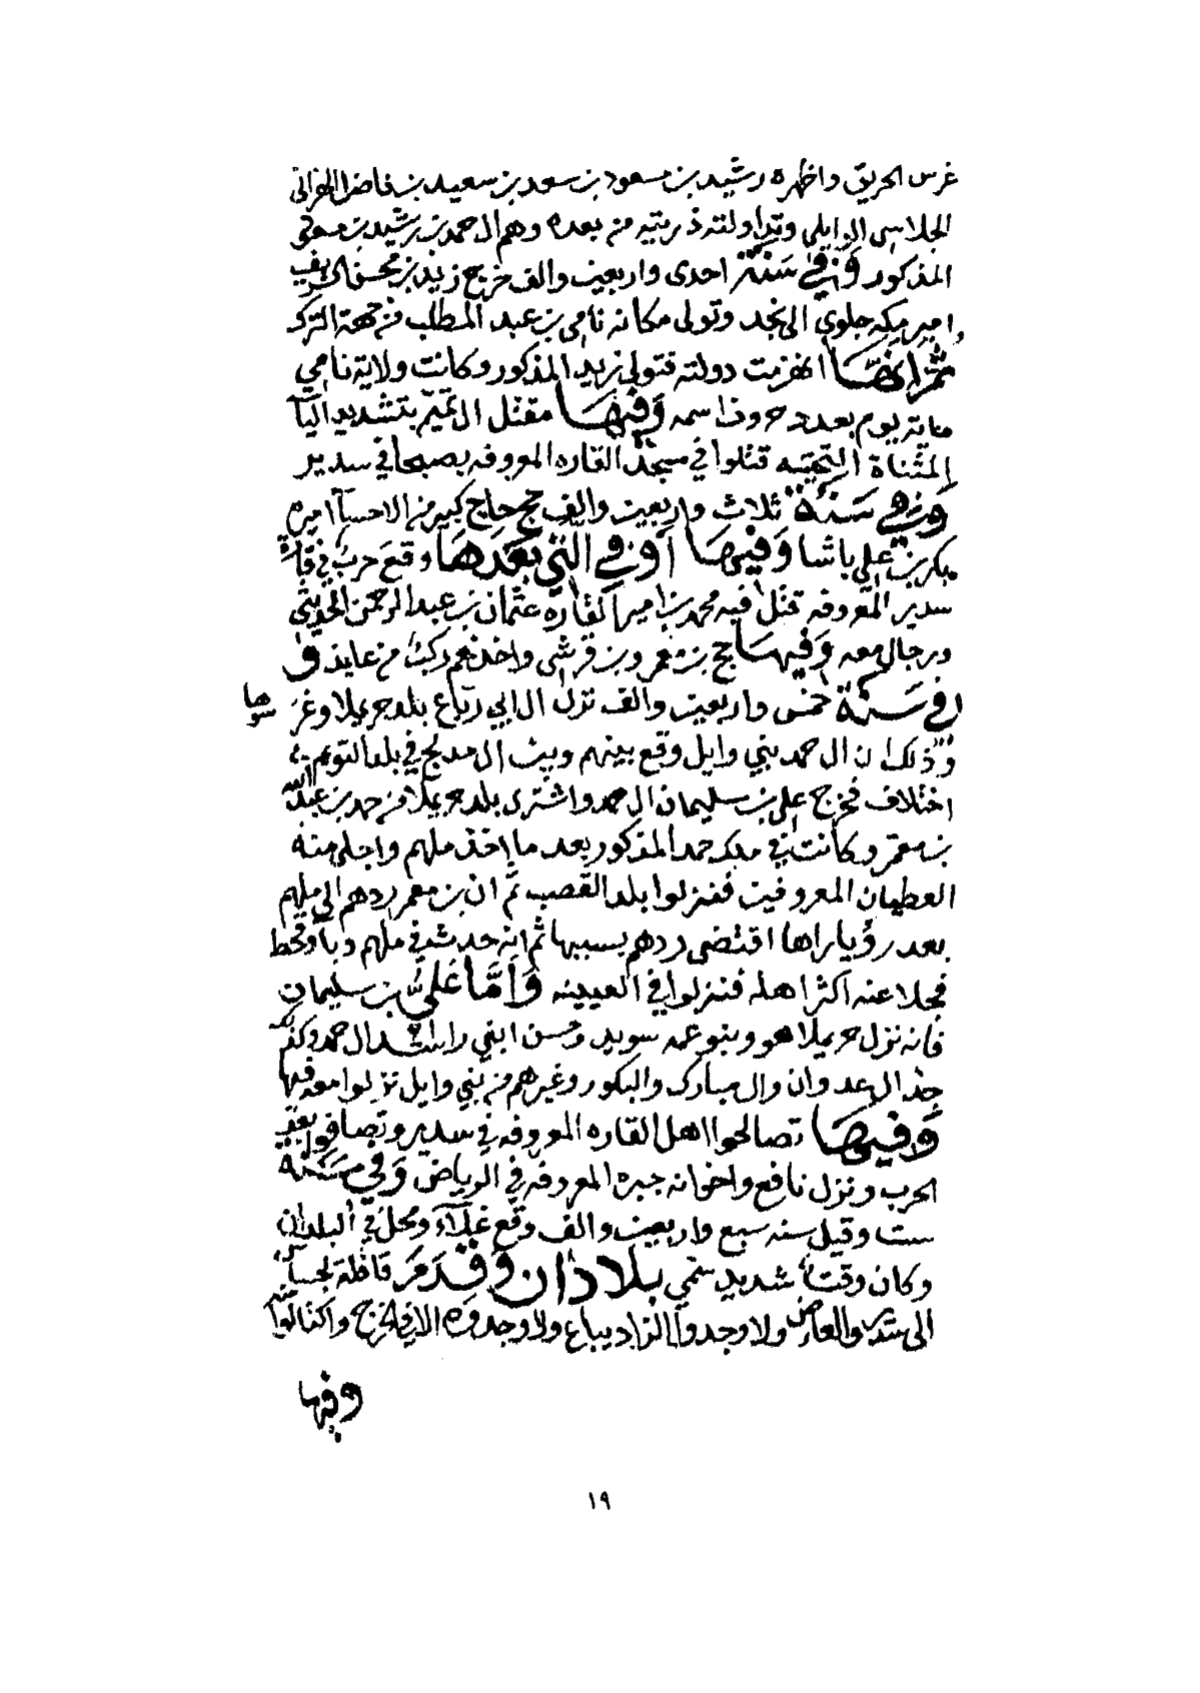 غرس الحريق واظهره رشيد بن مسعود بن سعد بن سعيد بن فاضل الهزاني
الجلاسي الوايلي وتداولته ذريته من بعده وهم ال حمد بن رشيد بن مسعود
المذكور وفي سنة احدى واربعين والف خرج زيد بن محسن الشريف
امير مكه جلوي الى نجد وتولى مكانه نامي بن عبد المطلب من جهة الترك
ثم انها انهزمت دولته فتولى زيد المذكور وكانت ولاية نامي
ماية يوم بعدد حروف اسمه وفيها مقتل ال تميّم بتشديد اليآ
المثناة التحتيه قتلوا في مسجد القاره المعروفه بصبحا في سدير
وفي سنة ثلاث واربعين والف حج حاج كبير من الاحسآ اميره
بكر بن علي باشا وفيها أو في التي بعدها وقع حرب في قارة
سدير المعروفه قتل فيه محمد بن امير القاره عثمان بن عبد الرحمن الحديثي
ورجال معه وفيها حج بن معمر وبن قرشي واخذهم ركب من عايذ و
في سنة خمس واربعين والف نزل ال ابي رباع بلد حريملا وغرسوها
وذلك ان ال حمد بني وايل وقع بينهم وبين ال مدلج في بلد التويم
اختلاف فخرج علي بن سليمان ال حمد واشترى بلد حريملا من حمد بن عبدالله
بن معمر وكانت في ملك حمد المذكور بعد ما اخذ ملهم واجلى منه
العطيان المعروفين فنزلوا بلد القصب ثم ان بن معمر ردهم الى ملهم
بعد رؤيا راها اقتضى ردهم بسببها ثم انه حدث في ملهم وبا وقحط
فجلا عنه اكثر اهله فنزلوا في العيينه وأمّا عليّ بن سليمان
فانه نزل حريملا هو وبنو عمه سويد وحسن ابني راشد ال حمد وكذلك
جد ال عدوان وال مبارك والبكور وغيرهم من بني وايل نزلوا معه فيها
وفيها تصالحوا اهل القاره المعروفه في سدير وتصافوا بعد
الحرب ونزل نافع واخوانه جبره المعروفه في الرياض وفي سنة
ست وقيل سنه سبع واربعين والف وقع غلآء ومحل في البلدان
وكان وقتاً شديد سمّي بلادان وقدم قافلة لحسا
الى سدير والعارض ولا وجدوا الزاد يباع ولا وجدوه الا في الخرج واكتالوا منه
وفيها
١٩